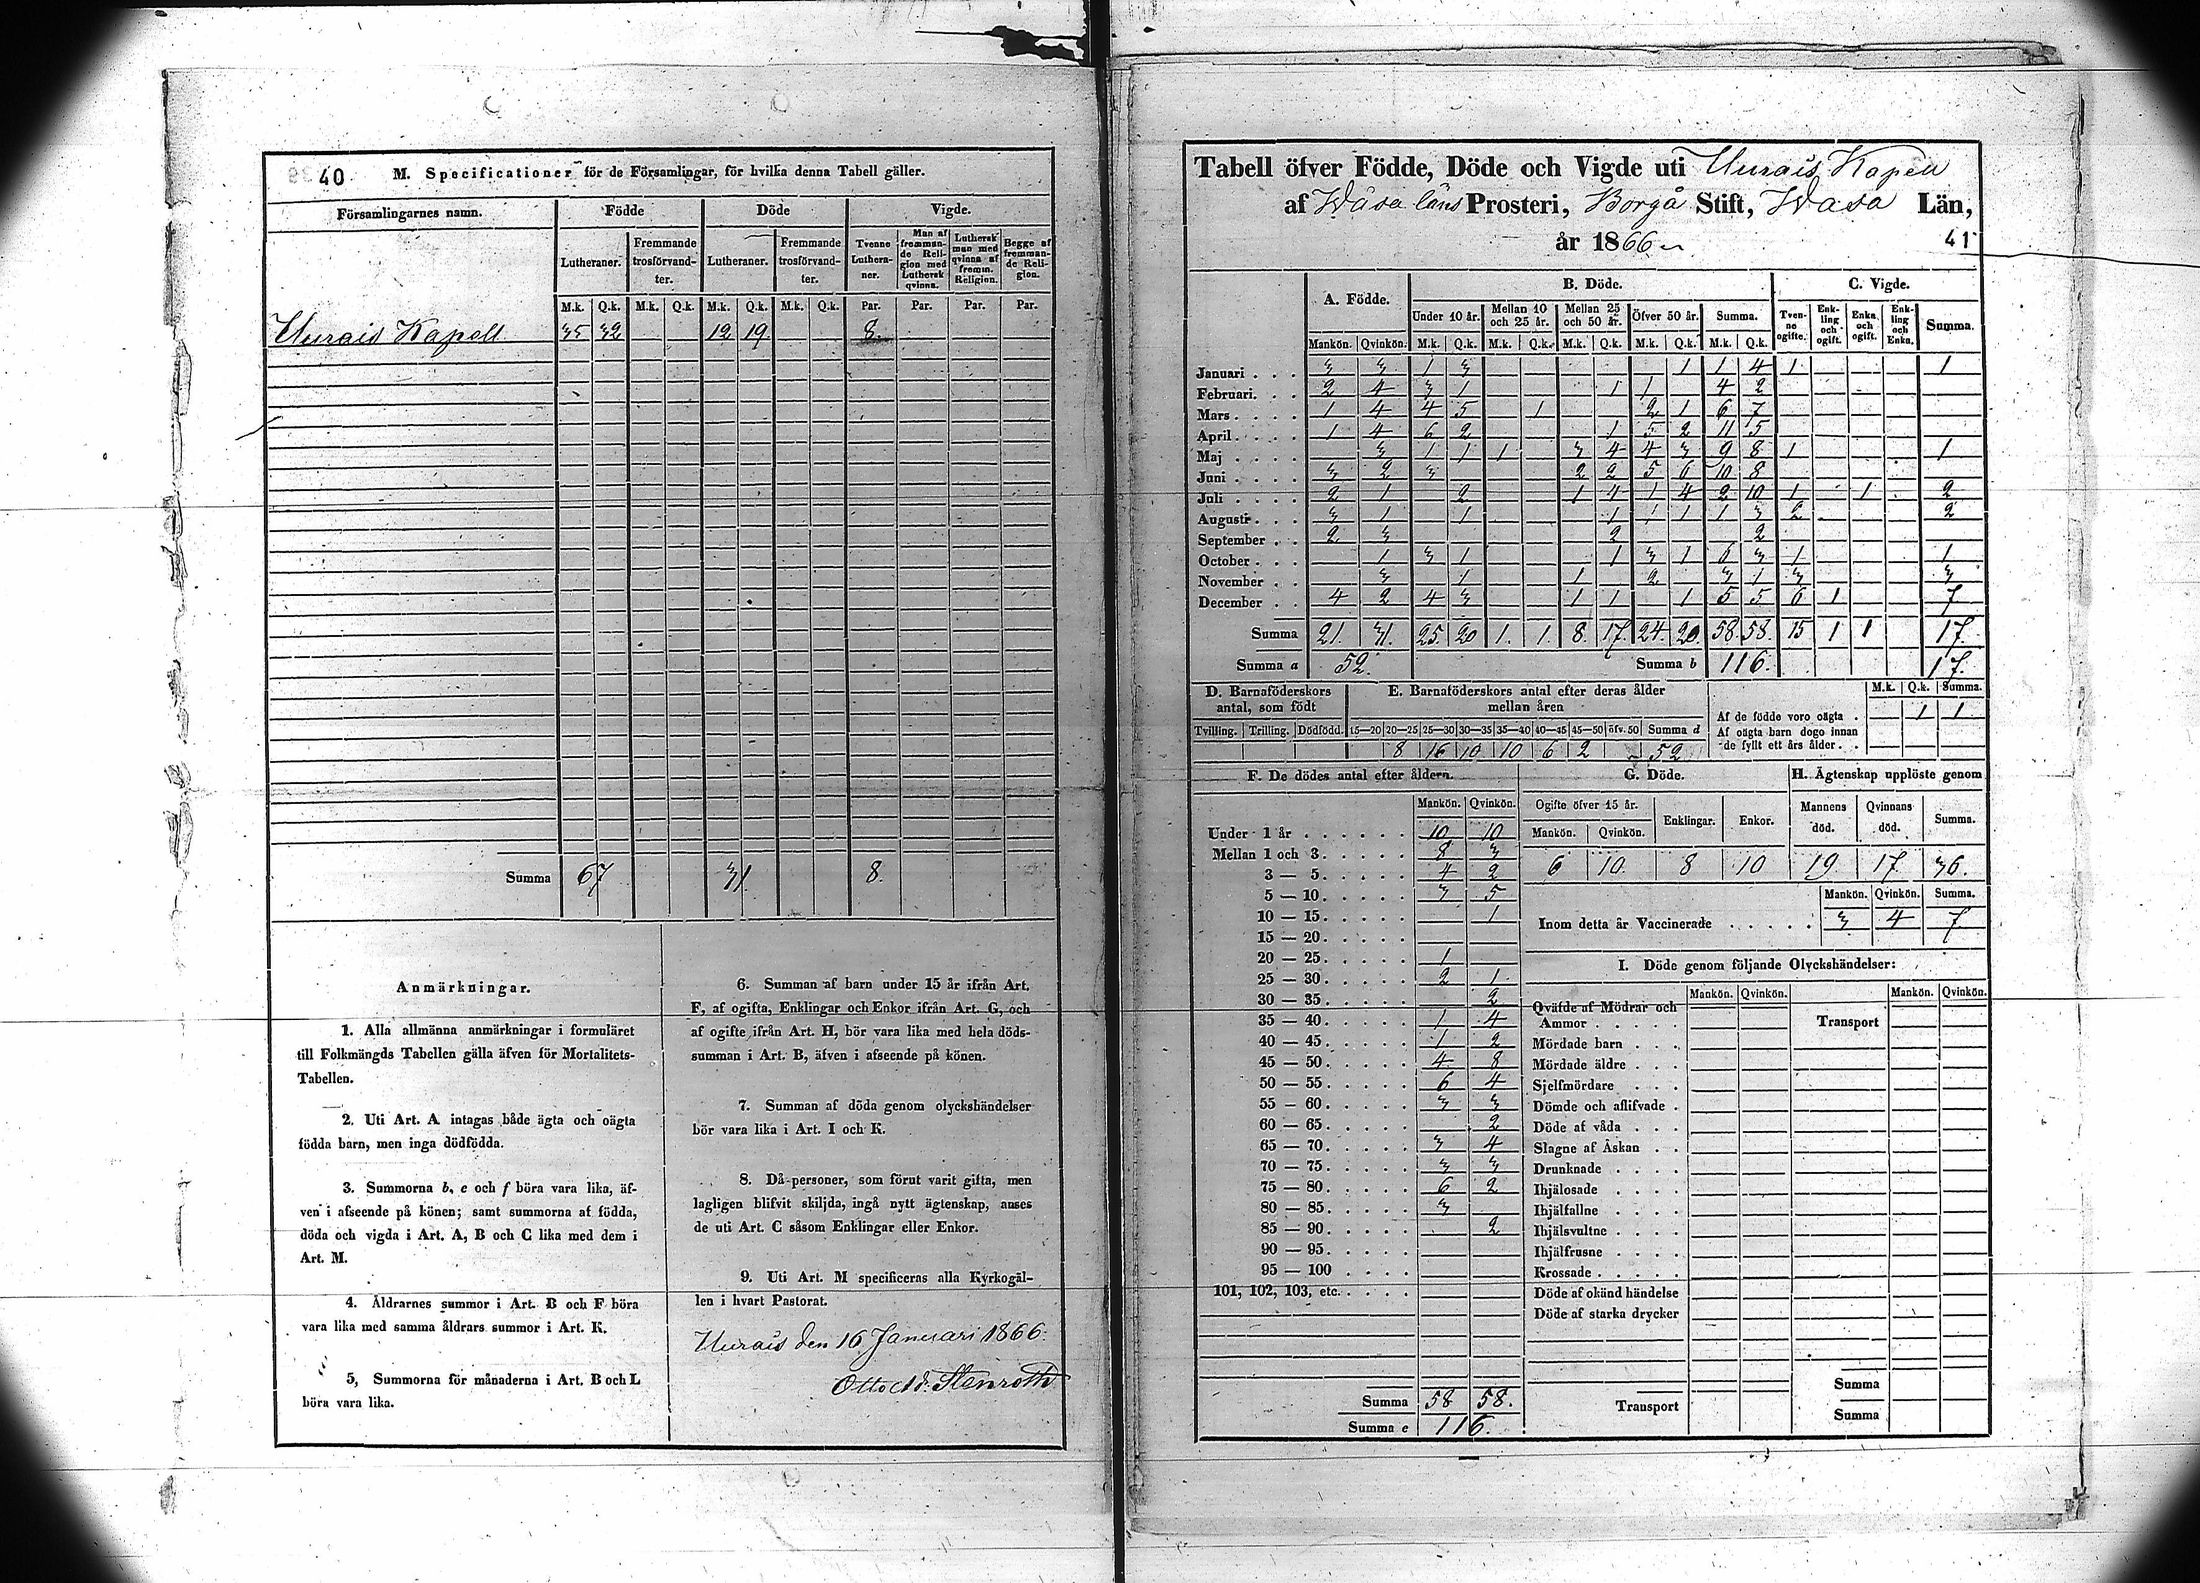 40 M. Specificationer för de Församlingar, för hvilka denna Tabell gäller.
Församlingarnes namn. Födde Döde Vigde.
Lutheraner. Fremmande trosförvandter. Lutheraner. Fremmande trosförvandter. Tvenne Lutheraner. Man af fremmande Religion med Luthersk qvinna. Luthersk man med qvinna af fremm. Religion. Begge af fremmande Religion.
M.k. Q.k. M.k. Q.k. M.k. Q.k. M.k. Q.k. Par. Par. Par. Par.
Uurais Kapell 35 32 12 19 8.
Summa 67 31 8.
Anmärkningar.
1. Alla allmänna anmärkningar i formuläret
till Folkmängds Tabellen gälla äfven för Mortalitets-
Tabellen.
2. Uti Art. A intagas både ägta och oägta
födda barn, men inga dödfödda.
3. Summorna b, e och f böra vara lika, äf-
ven i afseende på könen; samt summorna af födda,
döda och vigda i Art. A, B och C lika med dem i
Art. M.
4. Åldrarnes summor i Art. B och F böra
vara lika med samma åldrars summor i Art. K.
5, Summorna för månaderna i Art. B och L
böra vara lika.
6. Summan af barn under 15 år ifrån Art.
F, af ogifta, Enklingar och Enkor ifrån Art. G, och
af ogifte ifrån Art. H, bör vara lika med hela döds-
summan i Art. B, äfven i afseende på könen.
7. Summan af döda genom olyckshändelser
bör vara lika i Art. I och K.
8. Då personer, som förut varit gifta, men
lagligen blifvit skiljda, ingå nytt ägtenskap, anses
de uti Art. C såsom Enklingar eller Enkor.
9. Uti Art. M specificeras alla Kyrkogäl-
len i hvart Pastorat.
Uurais den 16 Januari 1866.
Otto Ad: Stenroth
Tabell öfver Födde, Döde och Vigde uti Uurais Kapell
af Wasa läns Prosteri, Borgå Stift, Wasa Län,
år 1866 41
A. Födde. B. Döde. C. Vigde.
Under 10 år. Mellan 10 och 25 år. Mellan 25 och 50 år. Öfver 50 år. Summa. Tvenne ogifte. Enkling och ogift. Enka och ogift. Enkling och Enka. Summa.
Mankön. Qvinkön. M.k. Q.k. M.k. Q.k. M.k. Q.k. M.k. Q.k. M.k. Q.k.
Januari 3 3 1 3 1 1 4 1 1
Februari 2 4 3 1 1 1 4 2
Mars 1 4 4 5 1 2 1 6 7
April 1 4 6 2 1 5 2 11 5
Maj 3 1 1 1 3 4 4 3 9 8 1 1
Juni 3 2 3 2 2 5 6 10 8
Juli 2 1 2 1 4 1 4 2 10 1 1 2
Augusti 3 1 1 1 1 1 1 3 2 2
September 2 3 2 2
October 1 3 1 1 3 1 6 3 1 1
November 3 1 1 2 3 1 3 3
December 4 2 4 3 1 1 1 5 5 6 1 7
Summa 21. 31. 25. 20 1. 1. 8. 17. 24. 20. 58. 58. 15 1 1 17.
Summa a 52. Summa b 116. 17.
D. Barnaföderskors antal, som födt
Tvilling. Trilling. Dödfödd.
E. Barnaföderskors antal efter deras ålder mellan åren
15—20 20—25 25—30 30—35 35—40 40—45 45—50 öfv. 50 Summa d
8 16 10 10 6 2 52
M.k. Q.k. Summa.
Af de födde voro oägta . 1 1
Af oägta barn dogo innan
de fyllt ett års ålder . .
F. De dödes antal efter åldern.
Mankön. Qvinkön.
Under 1 år 10 10
Mellan 1 och 3 8 3
3 — 5 4 2
5 — 10 3 5
10 — 15 1
15 — 20
20 — 25 1
25 — 30 2 1
30 — 35 2
35 — 40 1 4
40 — 45 1 2
45 — 50 4 8
50 — 55 6 4
55 — 60 3 3
60 — 65 2
65 — 70 3 4
70 — 75 3 3
75 — 80 6 2
80 — 85 3
85 — 90 2
90 — 95
95 — 100
101, 102, 103, etc.
Summa 58 58.
Summa e 116.
G. Döde.
Ogifte öfver 15 år. Enklingar. Enkor.
Mankön. Qvinkön.
6 10. 8 10
H. Ägtenskap upplöste genom
Mannens död. Qvinnans död. Summa.
19. 17. 36.
Mankön. Qvinkön. Summa.
Inom detta år Vaccinerade 3 4 7
I. Döde genom följande Olyckshändelser:
Mankön. Qvinkön. Mankön. Qvinkön.
Qväfde af Mödrar och
Ammor Transport
Mördade barn
Mördade äldre
Sjelfmördare
Dömde och aflifvade
Döde af våda
Slagne af Åskan
Drunknade
Ihjälosade
Ihjälfallne
Ihjälsvultne
Ihjälfrusne
Krossade
Döde af okänd händelse
Döde af starka drycker
Summa
Transport Summa